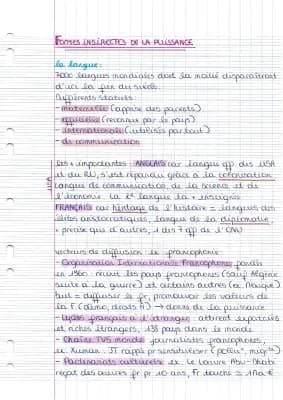 FORMES INDIRECTES DE LA PUISSANCE
la langue:
7000 langues mondiales dont la moitié disparaîtront
d'ici la fin du siècle.
Différents statuts:
- maternelle (apprise des parents)
- officielle (reconnue par le pays)
- internationale (utilisée partout)
- de communication
Les + importantes: ANGLAIS car langue off des USA
et du RU, s'est répandu grâce à la colonisation
langue de communication, de la science et de
l'économie. La 2e langue la + enseignée
FRANÇAIS car héritage de l'histoire = langues des
élites aristocratiques, langue de la diplomatie,
+ précise que d'autres, 1 des off de l'ONU
vecteurs de diffusion la francophonie:
- Organisation Internationale Francophonie, fondée
en : réunit les pays francophones (sauf Algérie
suite à la guerre) et certains autres (ex
but = diffuser le fr, promouvoir les valeurs de
la F (démo, droits H) → donne de la puissance
- Lycées français à l'étranger: attirent expatriés
et riches étrangers, 138 pays dans le monde
- Chaîne TV5 monde: journalistes francophones,
ex: rappá pr sensibiliser
- Partenariats culturels: ex. Le Louvre Abu-Dhabi
reçoit des œuvres fr pr 10 ans, Fr touche